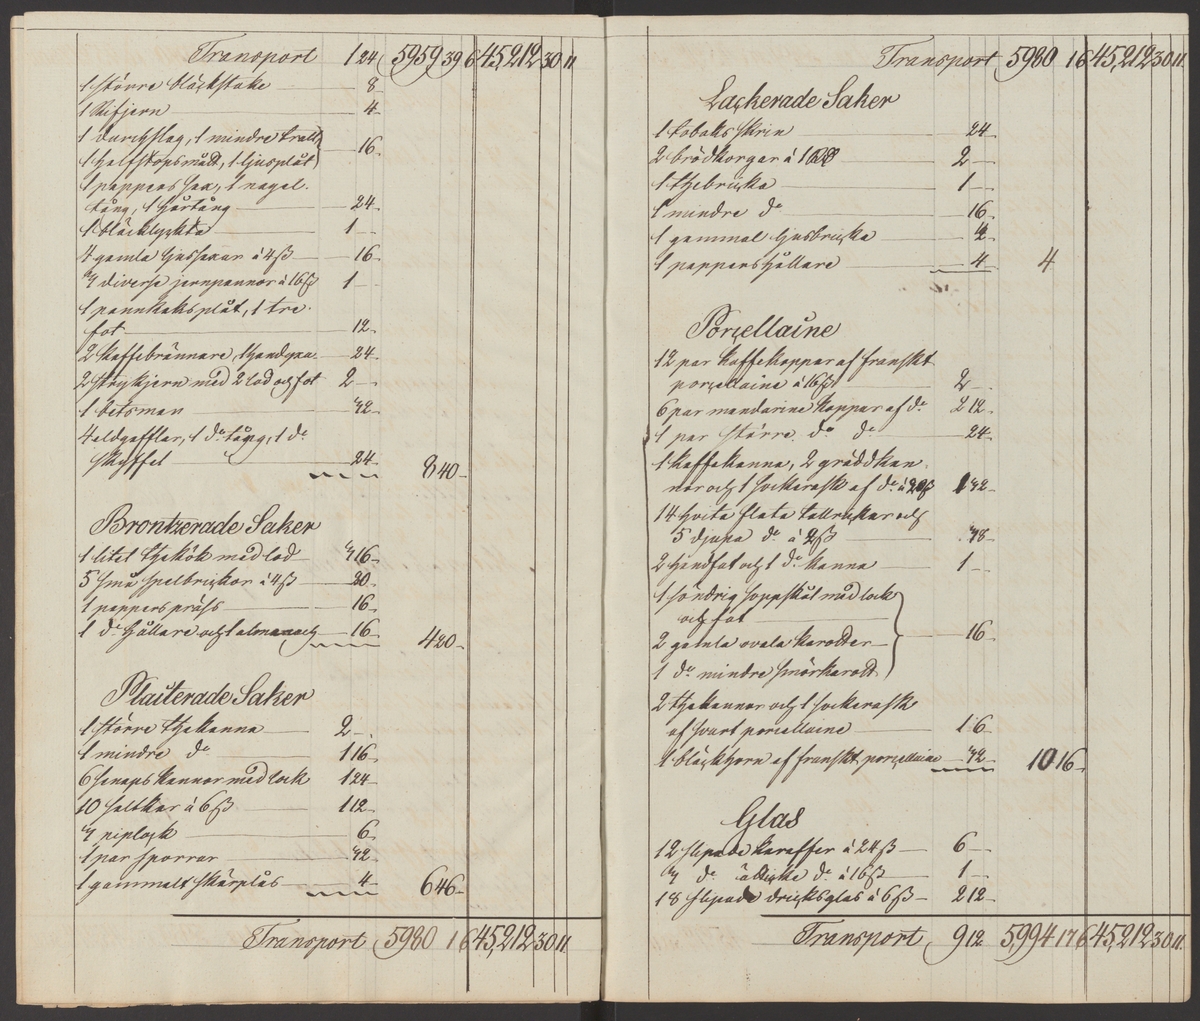 Transport 1 24 5959 39 6 45,212 30 11
1 större bläckstake 8
1 Rifjern 4
1 durchslag, 1 mindre tratt
1 halfstopsmått, 1 ljusplåt 16
1 papperssax, 1 nagel-
tång, 1 hårtång 24
1 bläcklyckta 1 —
4 gamla ljussaxar á 4ß 16
3 diverse jernpannor á 16ß 1 —
1 pannkaksplåt, 1 tre-
fot 12
2 kaffebrännare, 24
2 strykjern med 2 lod och fot 2 —
1 betsman 32
4 eldgafflar, 1 do tång, 1 do
skyffel 24 8 40
Brontzerade Saker
1 litet thekök med lod 3 16
5 små spelbrickor á 4ß 20
1 papperspräss 16
1 do hållare och 1 almanach 16 4 20
Plaiterade Saker
1 större thekanna 2 —
1 mindre do 1 16
6 senapskannor med lock 1 24
10 saltkar á 6ß 1 12
3 piplock 6
1 par sporrar 32
1 gammalt skärplås 4 6 46
Transport 5980 1 6 45,212 30 11
Transport 5980 1 6 45,212 30 11
Lackerade Saker
1 tobaksskrin 24
2 brödkorgar á 1 2 —
1 thebricka 1 —
1 mindre do 16
1 gammal ljusbricka 4
1 pappershållare 4 4
Porcellaine
12 par kaffekoppar af franskt
porcellaine á 16ß 2 —
6 par mandarine koppar af do 2 12
1 par större do do 24
1 kaffekanna, 2 gräddkan-
nor och 1 sockerask af do á 1 32
14 hvita flata tallrickar och
5 djupa do á 2ß 38
2 handfat och 1 do kanna 1 —
1 söndrig soppskål med lock
och fot
2 gamla ovala karotter 16
1 do mindre smörkarott
2 thekannor och 1 sockerask
af svart porcellaine 1 6
1 bläckhorn af franskt porcellaine 32 10 16
Glas
12 slipade karaffer á 24ß 6 —
3 do do á 16ß 1 —
18 slipade dricksglas á 6ß 2 12
Transport 9 12 5,994 17 6 45,212 30 11